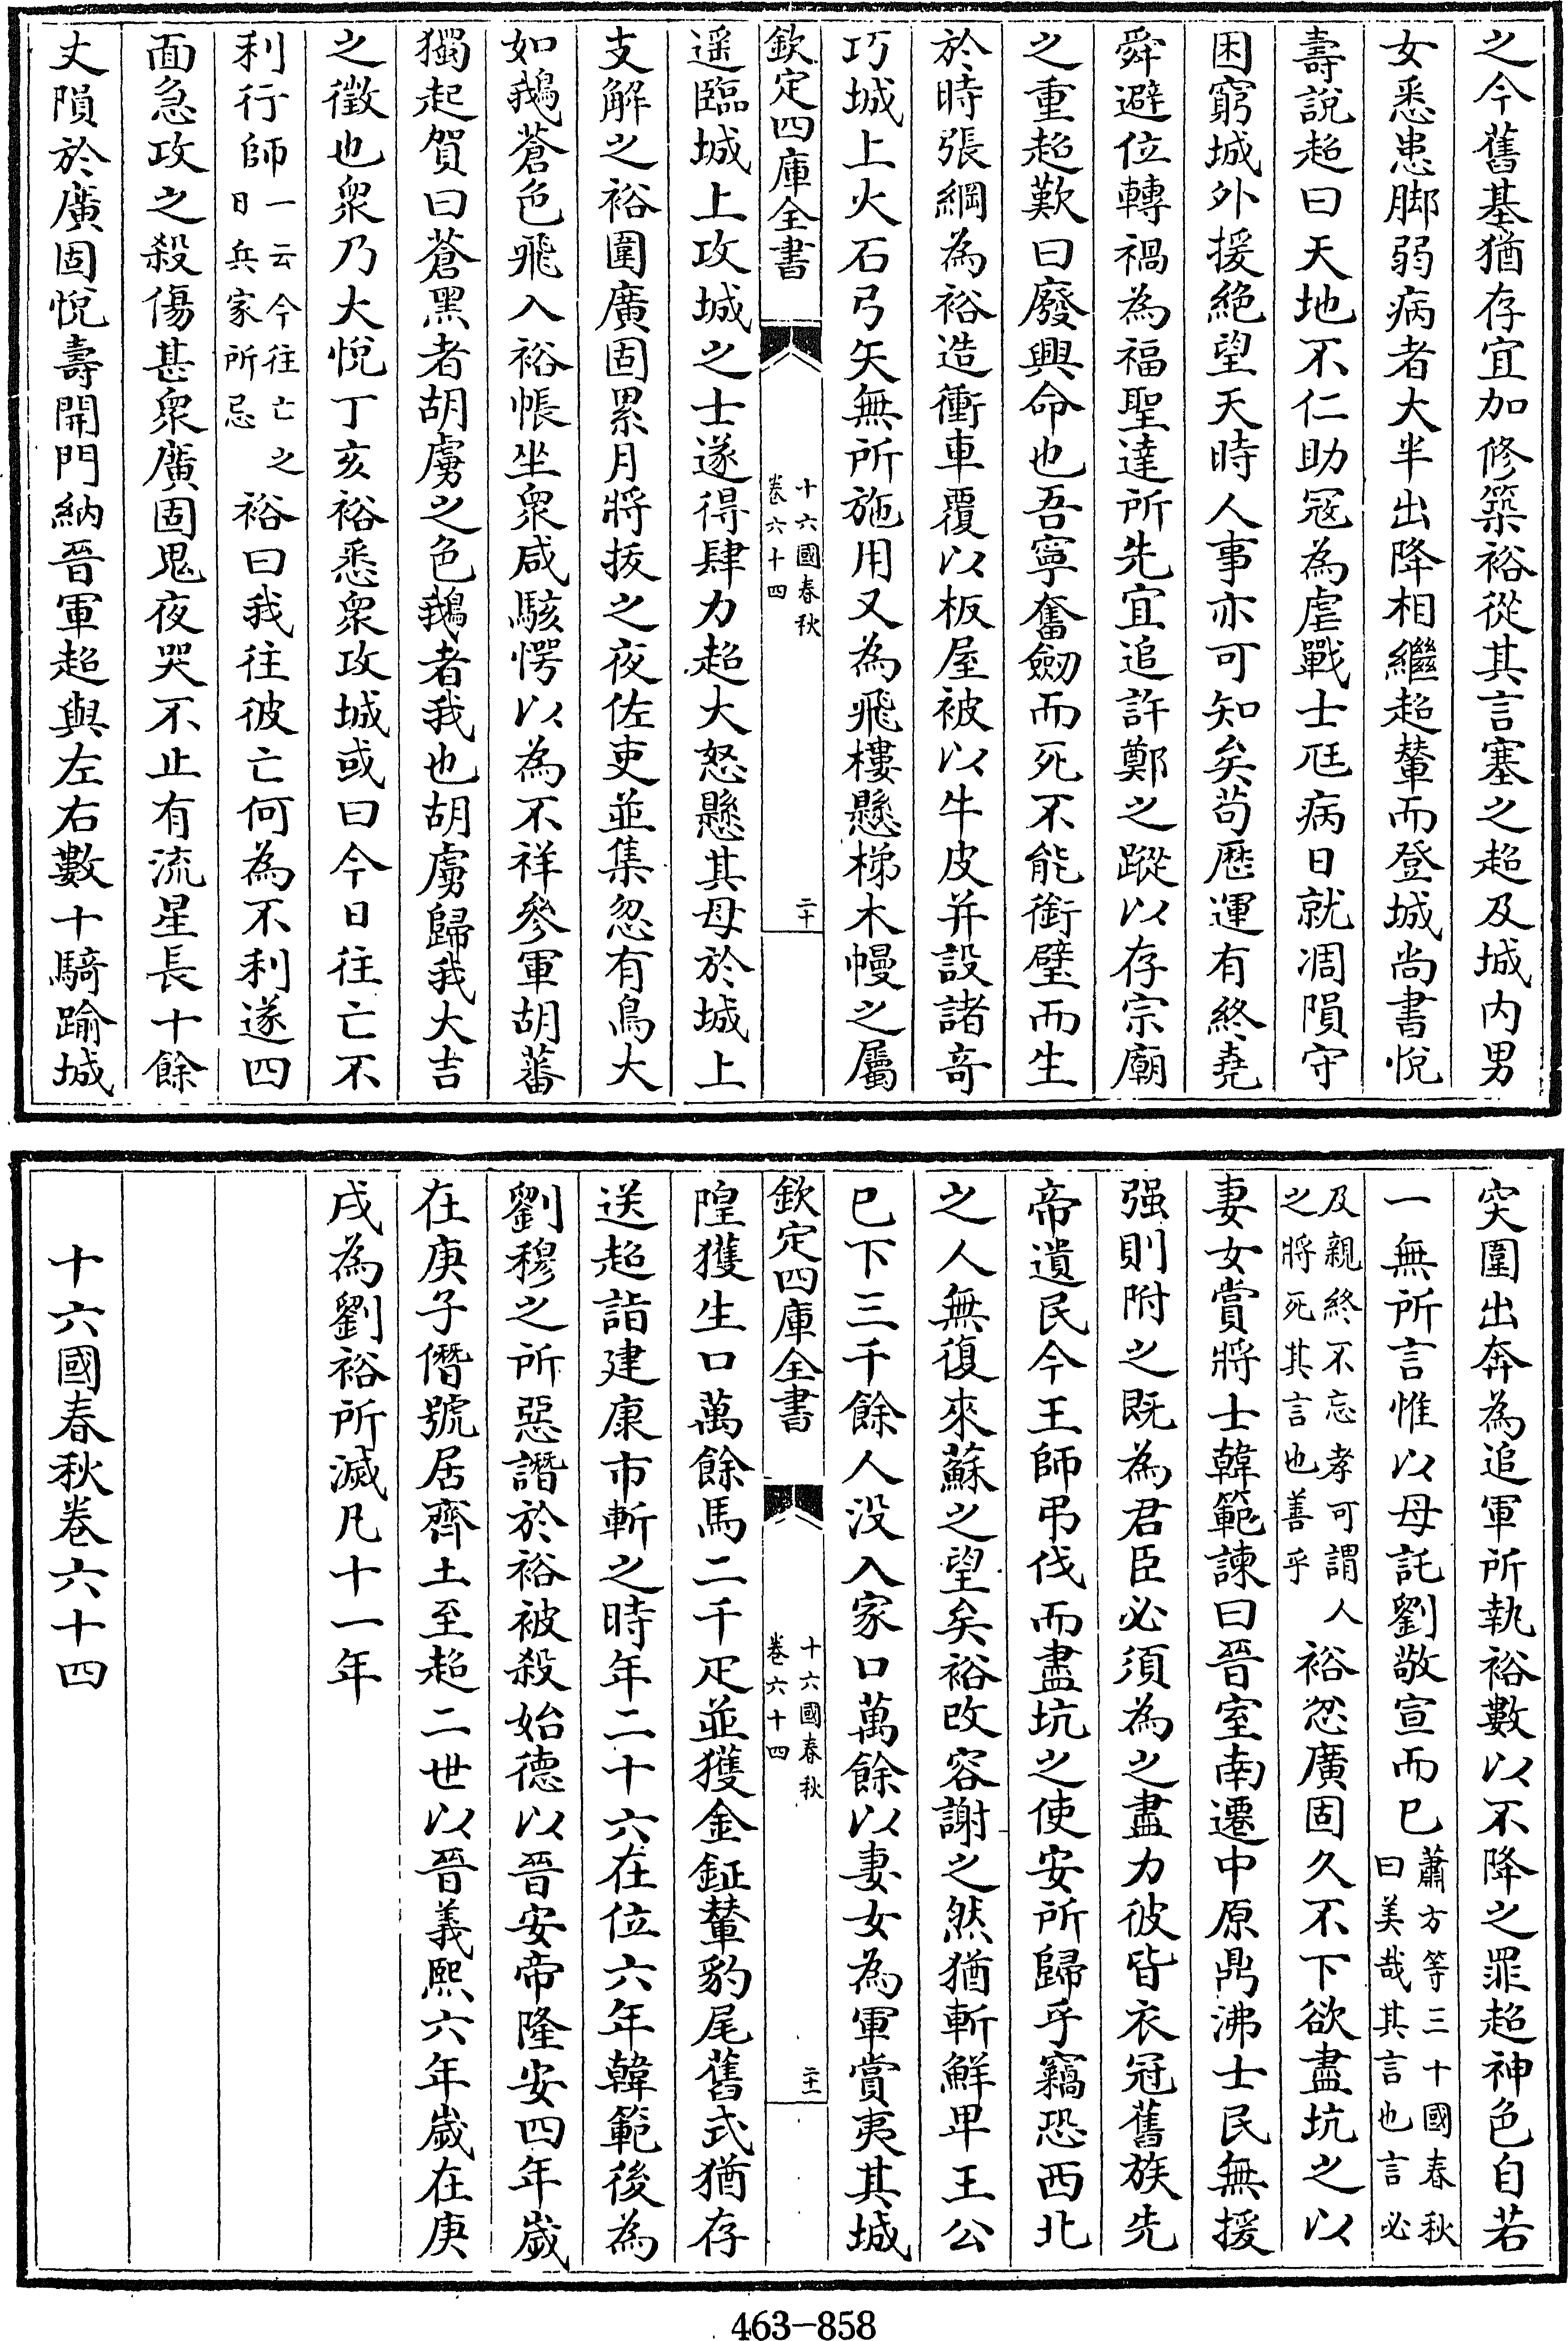 之今舊基猶存宜加修築裕從其言塞之超及城内男
女悉患脚弱病者大半出降相繼超輦而登城尚書悅
壽說超曰天地不仁助冦為虐戰士尫病日就凋隕守
困窮城外援絶望天時人事亦可知矣苟歷運有終堯
舜避位轉禍為福聖達所先宜追許鄭之蹤以存宗廟
之重超歎曰廢興命也吾寧奮劒而死不能銜璧而生
於時張綱為裕造衝車覆以板屋被以牛皮并設諸奇
巧城上火石弓矢無所施用又為飛樓懸梯木幔之屬
欽定四庫全書
十六國春秋
卷六十四
二十
遥臨城上攻城之士遂得肆力超大怒懸其母於城上
支解之裕圍廣固累月將拔之夜佐吏並集忽有鳥大
如鵝蒼色飛入裕帳坐衆咸駭愕以為不祥參軍胡蕃
獨起賀曰蒼黑者胡虜之色鵝者我也胡虜歸我大吉
之徵也衆乃大悅丁亥裕悉衆攻城或曰今日往亡不
利行師一云今往亡之日兵家所忌裕曰我往彼亡何為不利遂四
面急攻之殺傷甚衆廣固鬼夜哭不止有流星長十餘
丈隕於廣固悅壽開門納晉軍超與左右數十騎踰城
突圍出奔為追軍所執裕數以不降之罪超神色自若
一無所言惟以母託劉敬宣而已蕭方等三十國春秋曰美哉其言也言必
及親終不忘孝可謂人之將死其言也善乎裕忿廣固久不下欲盡坑之以
妻女賞將士韓範諫曰晉室南遷中原鼎沸士民無援
强則附之既為君臣必須為之盡力彼皆衣冠舊族先
帝遺民今王師弔伐而盡坑之使安所歸乎竊恐西北
之人無復來蘇之望矣裕改容謝之然猶斬鮮卑王公
已下三千餘人没入家口萬餘以妻女為軍賞夷其城
欽定四庫全書
十六國春秋
卷六十四
二十一
隍獲生口萬餘馬二千疋並獲金鉦輦豹尾舊式猶存
送超詣建康市斬之時年二十六在位六年韓範後為
劉穆之所惡譖於裕被殺始德以晉安帝隆安四年歲
在庚子僭號居齊土至超二世以晉義熙六年歲在庚
戌為劉裕所滅凡十一年
十六國春秋卷六十四
463-858